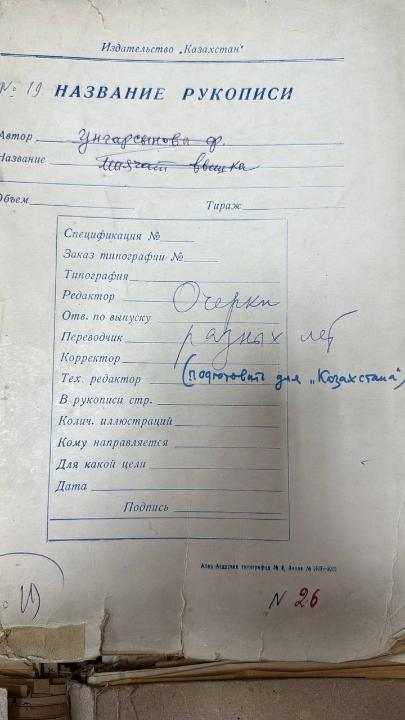 Издательство „Казахстан"
№ 19 НАЗВАНИЕ РУКОПИСИ
Автор Унгарсынова Ф.
Название Маячит вышка
Объем Тираж
Спецификация №
Заказ типографии №
Типография
Редактор Очерки
Отв. по выпуску
Переводчик разных лет
Корректор
Тех. редактор (подготовить для „Казахстана")
В рукописи стр.
Колич. иллюстраций
Кому направляется
Для какой цели
Дата
Подпись
типография №
N 26